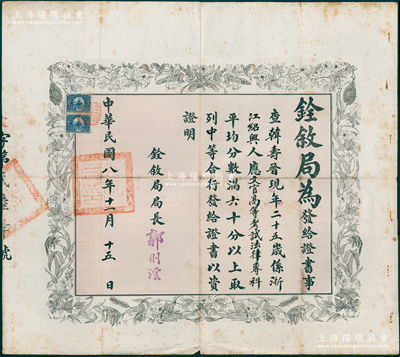 上海陽明拍賣
銓敘局為發給證書事
查韓壽晉現年二十五歲係浙
江紹興人應文官高等考試法律專科
平均分數滿六十分以上取
列中等合行發給證書以資
證明
銓敘局局長 郭則澐
中華民國八年十一月十五日
字第 號
上海陽明拍賣